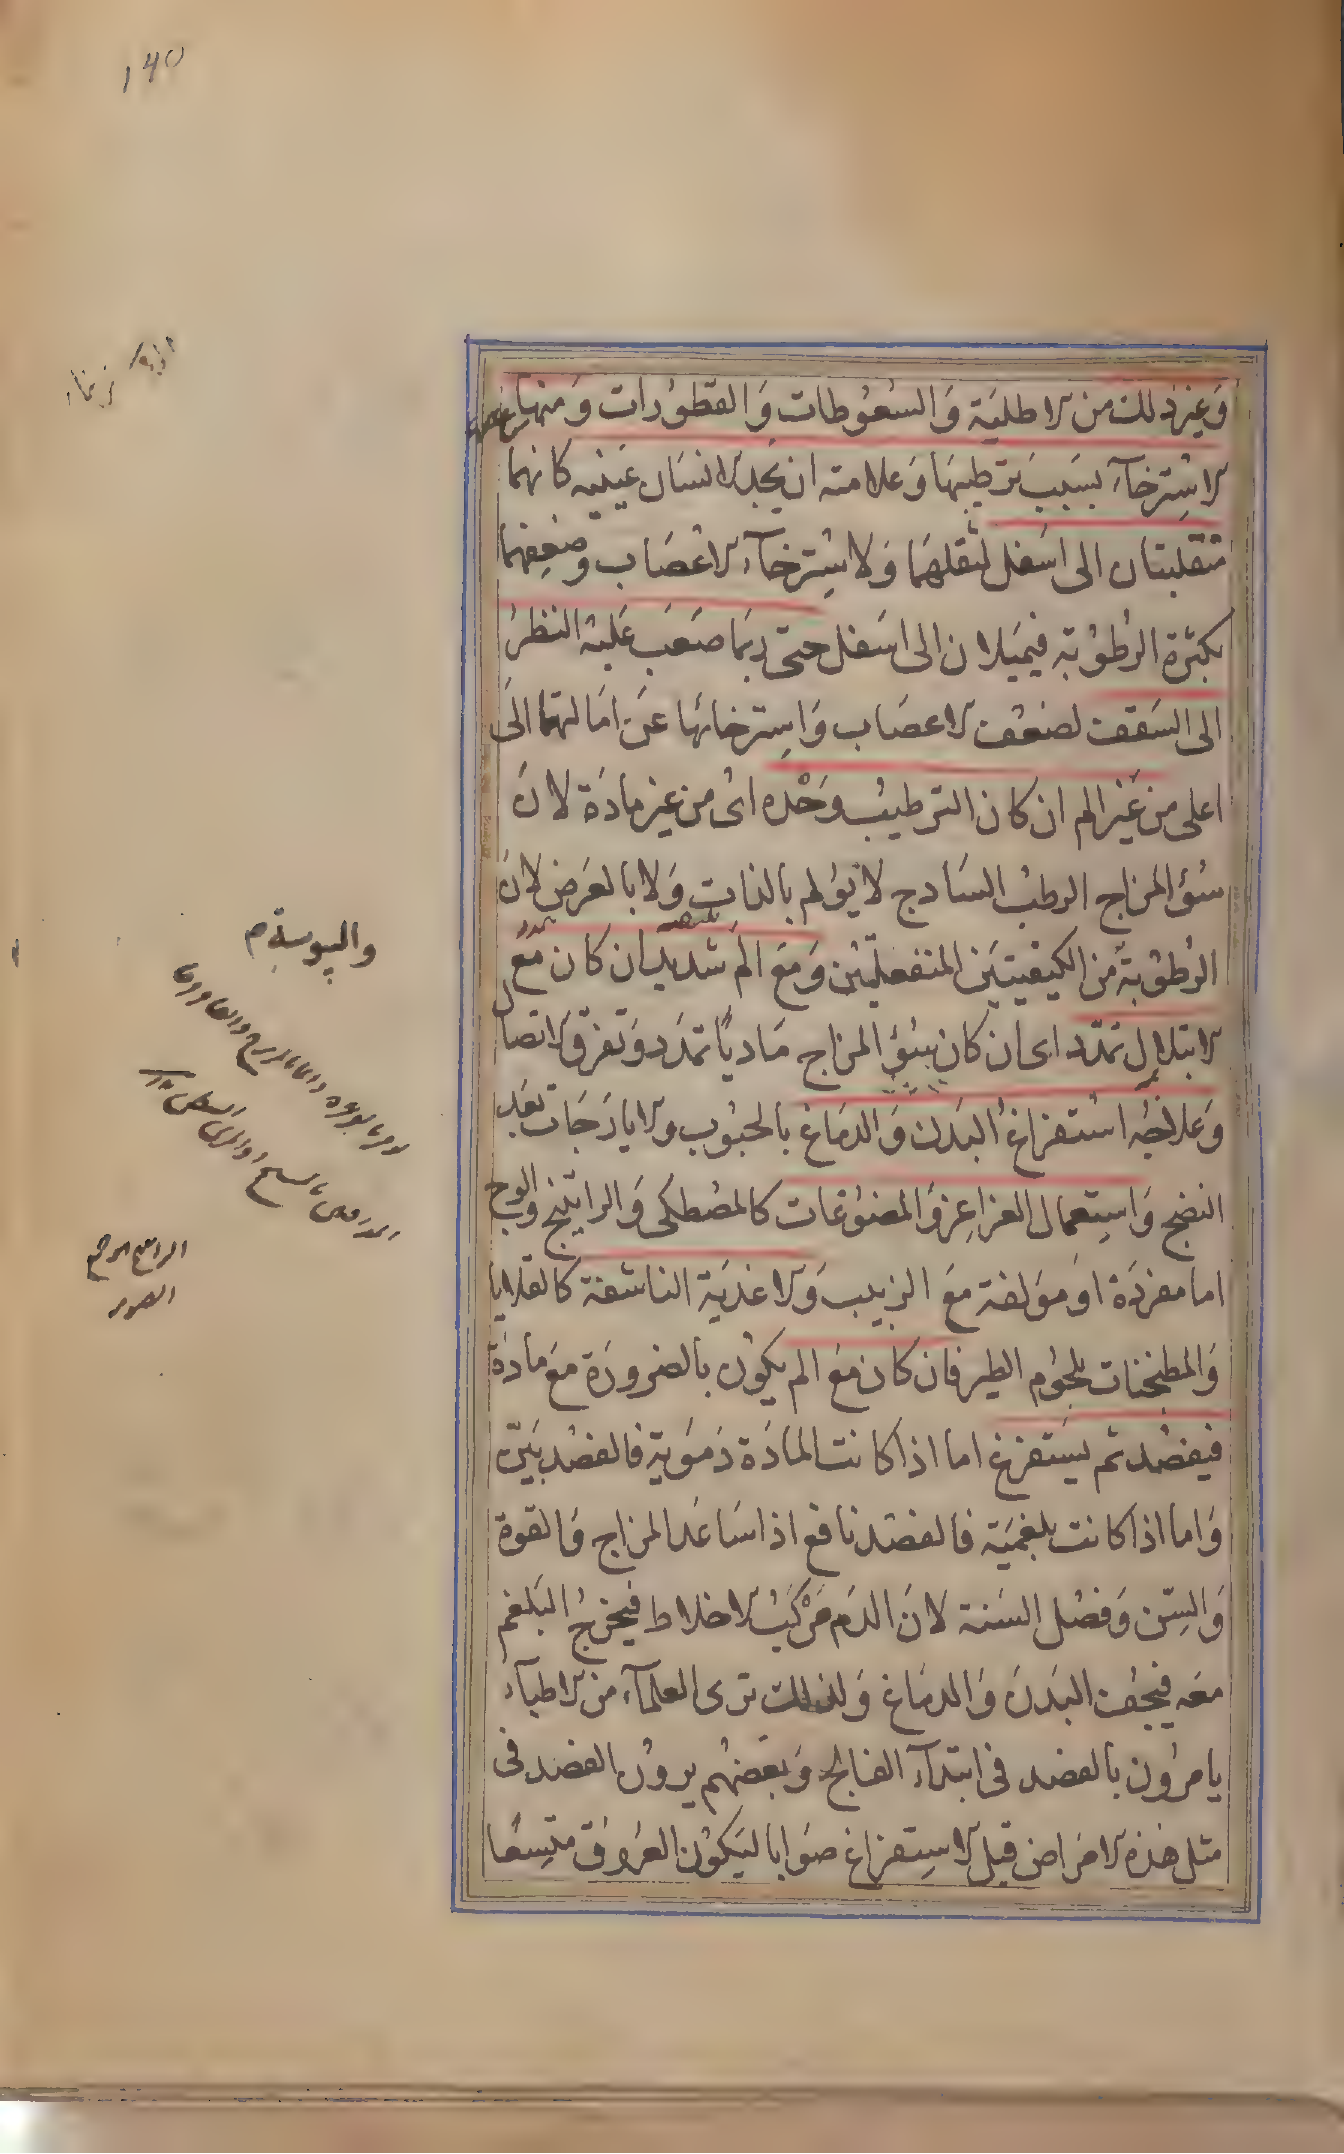 ۱۴۵
وَغير ذلك من الاطليَة وَالسّعُوطات وَالقطوُرات وَمنهَا
الاستِرخآء بسَببَ ترطيبهَا وَعلامته ان يجدَ الانسَان عَينيه كانهما
تنقلبتان الى اسَفل لثقلهمَا وَلاستِرخآء الاعْصَاب وضعِفهمَا
بكثرة الرُطوُبة فيميَلان الى اسَفل حتى ربمَا صَعَب عَليهْ النظرُ
الى السَقف لضعْف الاعصَاب وَاستِرخائهَا عَن امَالتهما الَى
اعلى من غَير الم ان كان الترطيبُ وحْده اىْ من غير مادَة لانَ
سُؤ المزاج الرطبُ السَادج لا يؤلم بالذات وَلا بالعَرض لانَ
الرُطوُبة من الكيفيتيَن المنفعلتيْن وَمعَ الَم شديد ان كان معَ
الابتلال تمدّد اى ان كان سُؤ المزاج مَاديًا تمدَد وَتفرّق الاتصَال
وَعلاجُه اسْتفراغ البَدن وَالدمَاغ بالحبُوب وَالايارَجَات بَعْد
النضج وَاستِعمال الغراغِر وَالمضوُغات كالمصْطكى وَالراتينج وَالوج
اما مفردَة اوَ مؤلفة معَ الزبيب وَالاغذيَة الناشفة كالقلايا
وَالمطجّنات بلحُوم الطير فان كان معَ الم يكوُن بالضرورَة معَ مادَة
فيفصُد ثم يسَتفرغ اما اذا كانت المادَة دَموَية فالفصُد بيَنّ
وَاما اذا كانت بلغميَة فالفصْد نافع اذا سَاعدَ المزاج وَالقوة
وَالسِّن وَفصْل السَنة لانَ الدَم مَرْكبُ الاخلاط فيخرجُ البَلغم
معَه فيجفّ البَدنَ وَالدمَاغ وَلذلك ترى العلمآء من الاطبآء
يامرُون بالفصد فى ابتدآء الفالج وَبعَضهُم يرون الفصَد فى
مثل هَذه الامَراض قبل الاستِفراغ صَوابا ليَكوُن العُروُق متّسِعًا
واليبوسة م